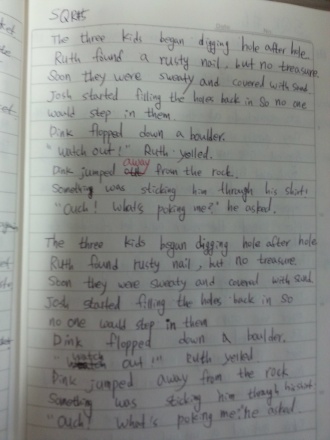 SQRB
The three kids began digging hole after hole.
Ruth found a rusty nail, but no treasure.
Soon they were sweaty and covered with sand.
Josh started filling the holes back in so no one
would step in them.
Dink flopped down a boulder.
"Watch out!" Ruth yelled.
Dink jumped away from the rock.
Something was sticking him through his shirt.
"Ouch! What's poking me?" he asked.
The three kids began digging hole after hole
Ruth found rusty nail, but no treasure.
Soon they were sweaty and covered with sand.
Josh started filling the holes back in so
no one would step in them
Dink flopped down a boulder.
"Watch out!" Ruth yelled
Dink jumped away from the rock
Something was sticking him through his shirt.
"Ouch! What's poking me?" he asked.